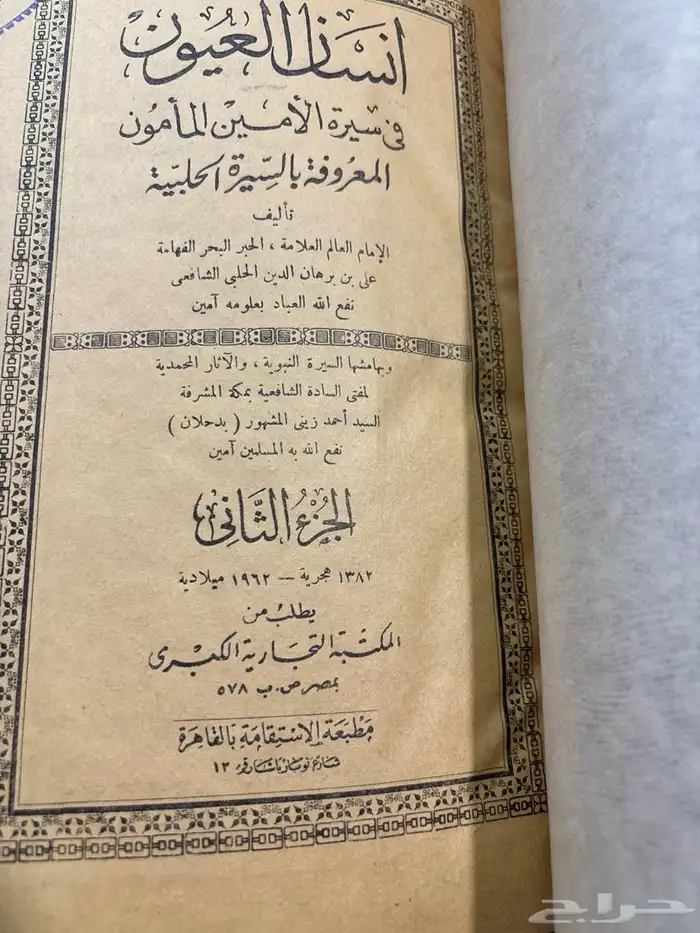 انسان العيون
فى سيرة الأمين المأمون
المعروفة بالسيرة الحلبية
تأليف
الإمام العالم العلامة ، الحبر البحر الفهامة
على بن برهان الدين الحلبى الشافعى
نفع الله العباد بعلومه آمين
وبهامشها السيرة النبوية ، والآثار المحمدية
لمفتى السادة الشافعية بمكة المشرفة
السيد أحمد زينى المشهور ( بدحلان )
نفع الله به المسلمين آمين
الجزء الثانى
١٣٨٢ هجرية — ١٩٦٢ ميلادية
يطلب من
المكتبة التجارية الكبرى
بمصر ص . ب ٥٧٨
مطبعة الاستقامة بالقاهرة
شارع نوبار باشا رقم ١٢
حراج